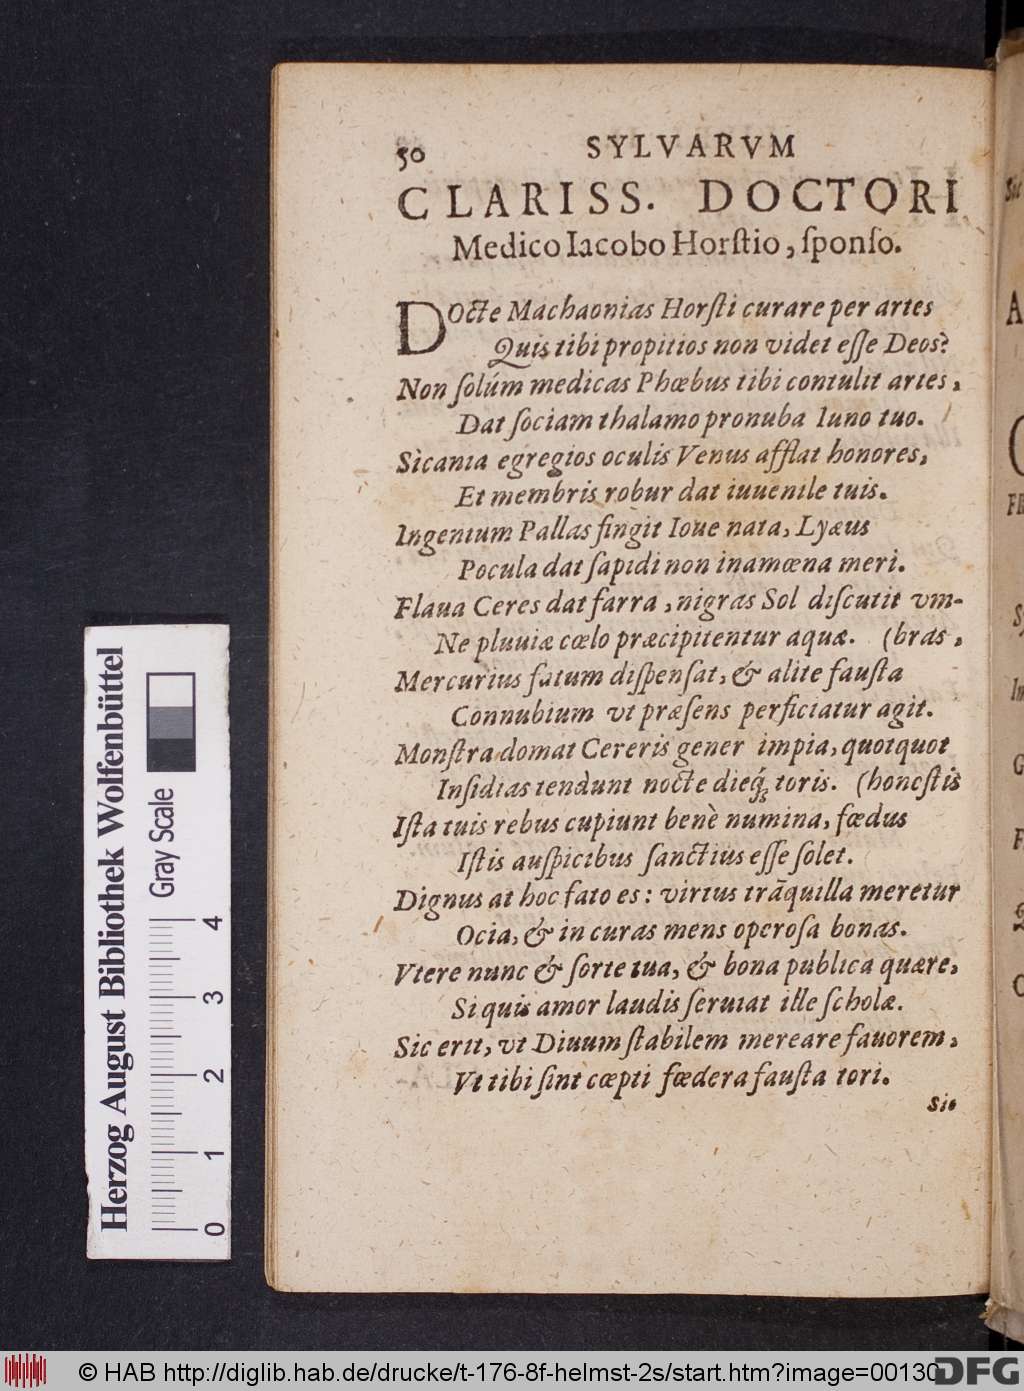 50 SYLVARVM
CLARISS. DOCTORI
Medico Iacobo Horſtio, ſponſo.
DOcte Machaonias Horſti curare per artes
Quis tibi propitios non videt eſſe Deos?
Non ſolúm medicas Phœbus tibi contulit artes,
Dat ſociam thalamo pronuba Iuno tuo.
Sicania egregios oculis Venus afflat honores,
Et membris robur dat iuuenile tuis.
Ingenium Pallas fingit Ioue nata, Lyæus
Pocula dat ſapidi non inamœna meri.
Flaua Ceres dat farra, nigras Sol diſcutit vm-
Ne pluuiæ cœlo præcipitentur aquæ. (bras,
Mercurius fatum diſpenſat, & alite fauſta
Connubium vt præſens perficiatur agit.
Monſtra domat Cereris gener impia, quotquot
Inſidias tendunt nocte dieq́; toris. (honeſtis
Iſta tuis rebus cupiunt benè numina, fœdus
Iſtis auſpicibus ſanctius eſſe ſolet.
Dignus at hoc fato es: virtus trāquilla meretur
Ocia, & in curas mens operoſa bonas.
Vtere nunc & ſorte tua, & bona publica quære,
Si quis amor laudis ſeruiat ille ſcholæ.
Sic erit, vt Diuum ſtabilem mereare fauorem,
Vt tibi ſint cœpti fœdera fauſta tori.
Sic
Herzog August Bibliothek Wolfenbüttel
Gray Scale
0 1 2 3 4
© HAB http://diglib.hab.de/drucke/t-176-8f-helmst-2s/start.htm?image=00130
DFG